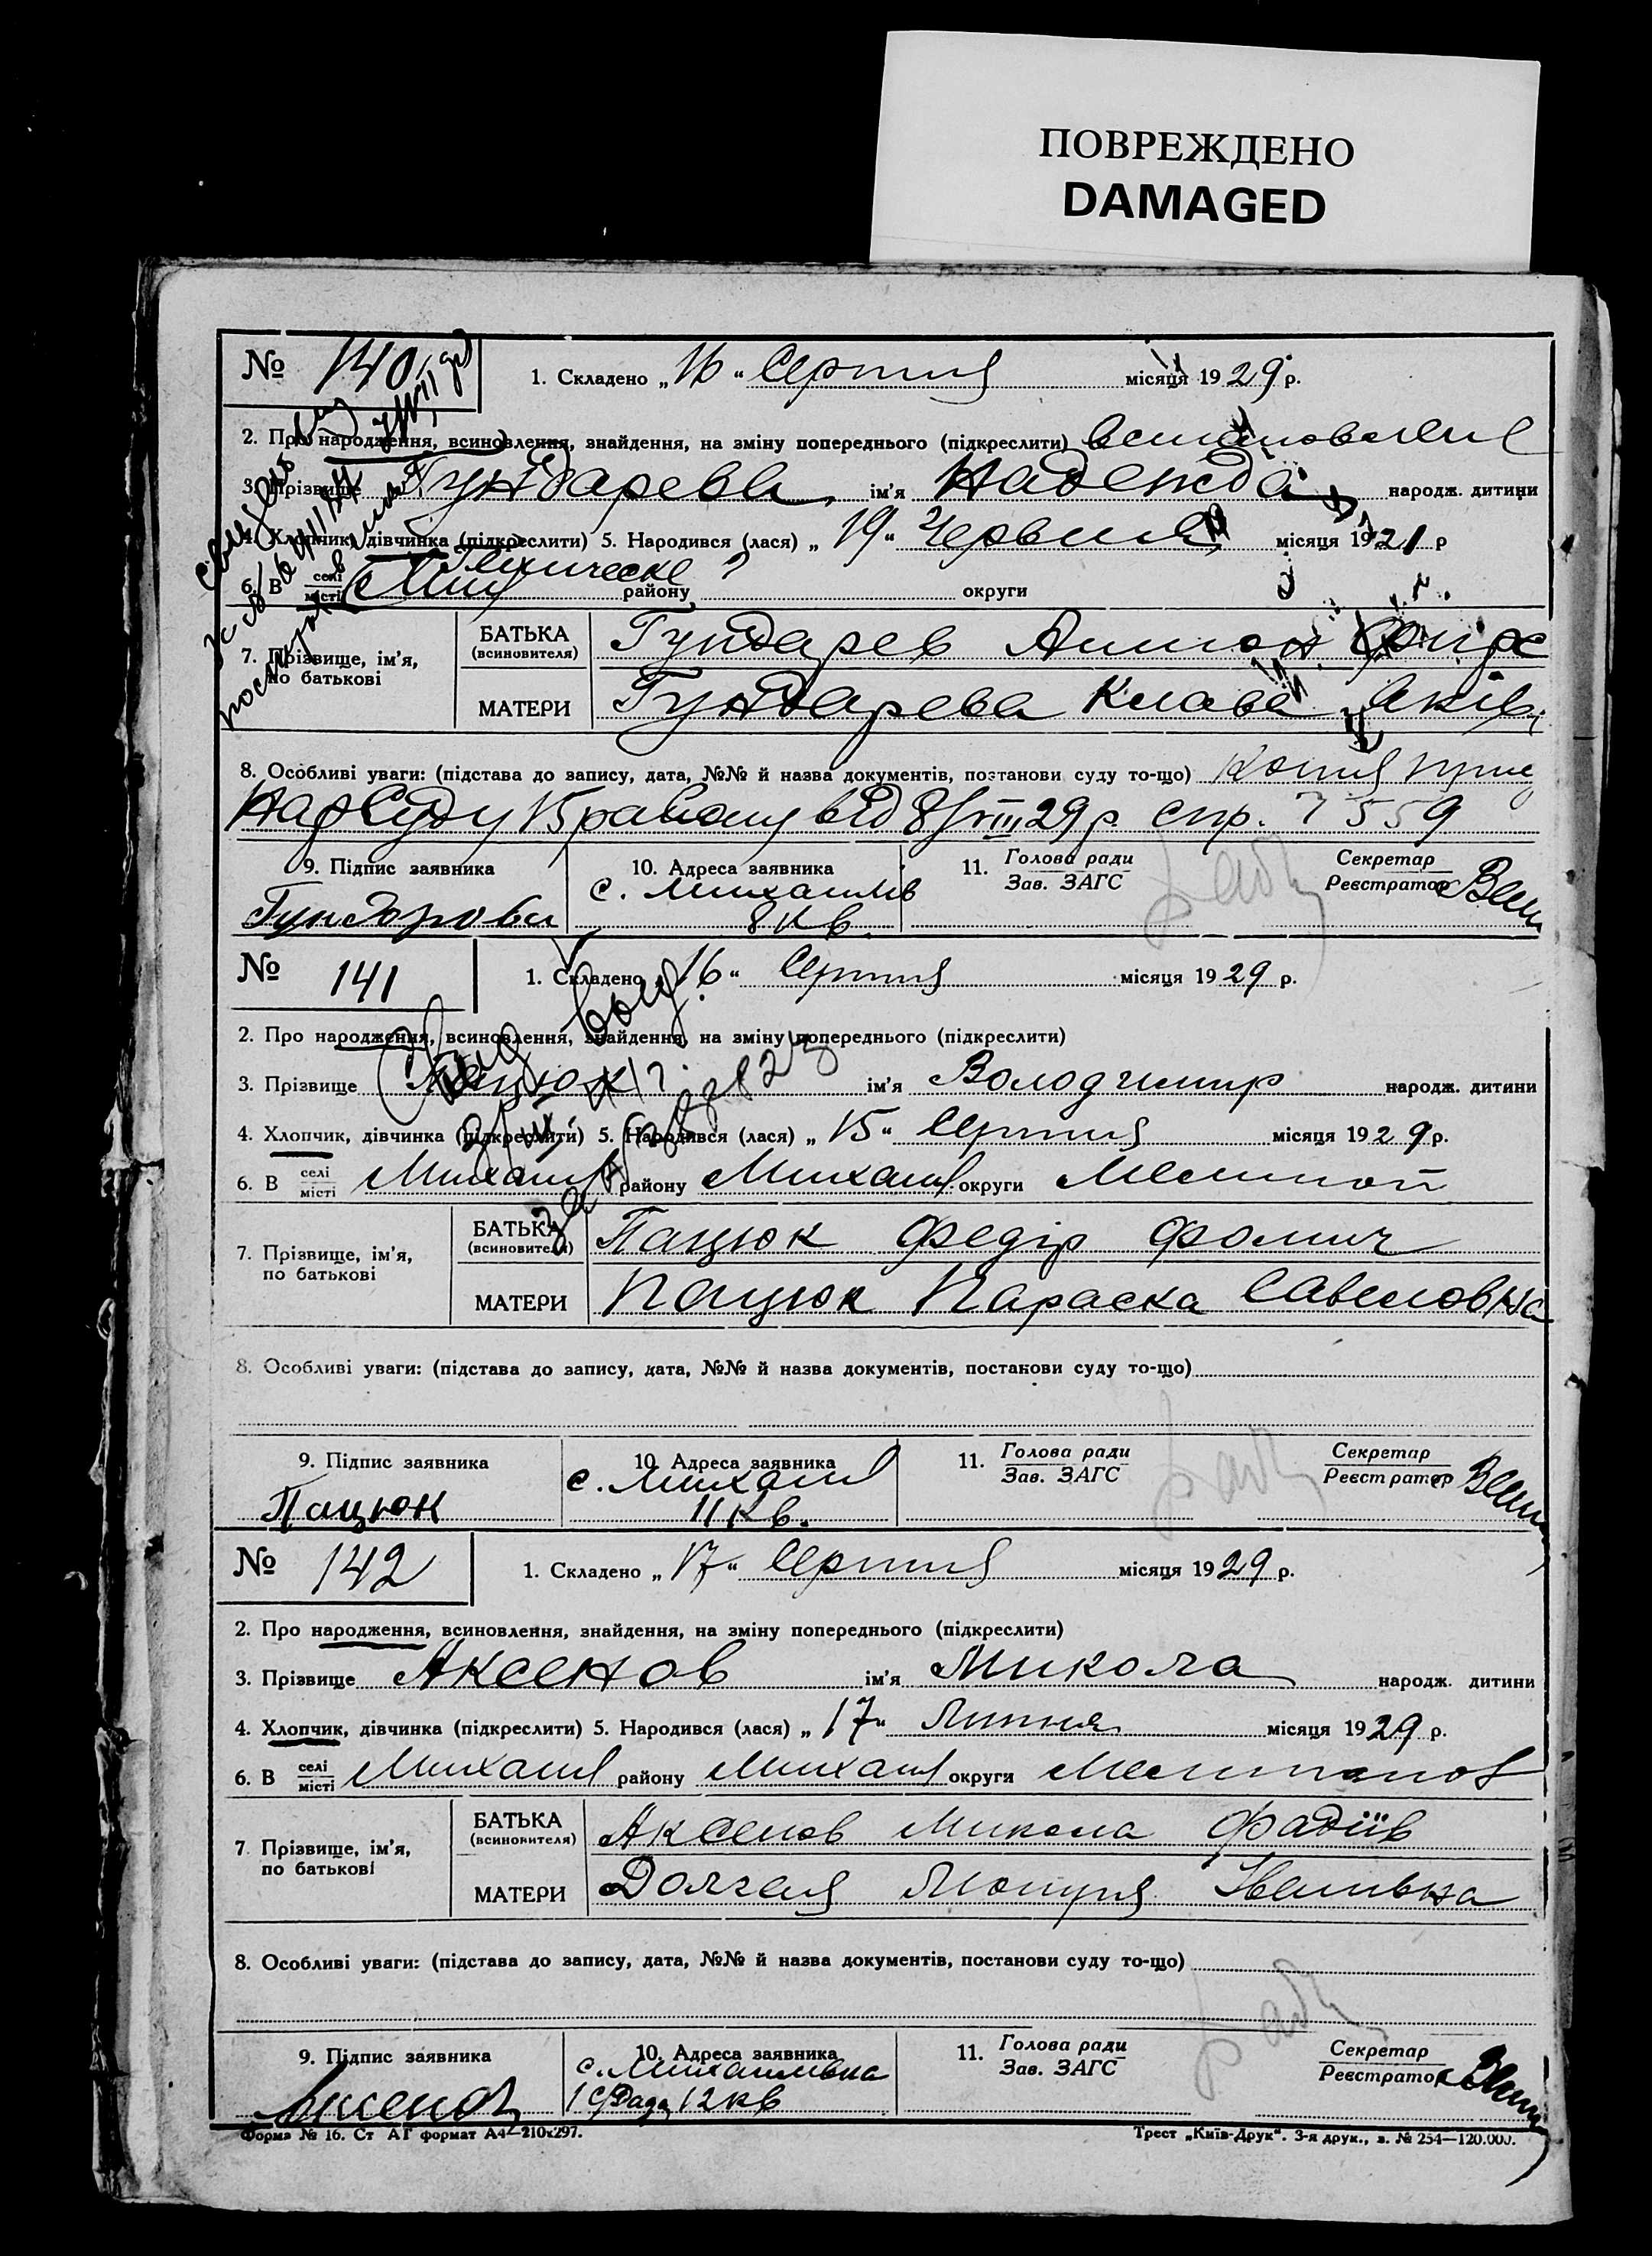 ПОВРЕЖДЕНО
DAMAGED
№ 140 1. Складено „16“ Серпня місяця 1929 р.
2. Про народження, всиновлення, знайдення, на зміну попереднього (підкреслити)
3. Прізвище Гундарева ім'я Надежда народж. дитини
4. Хлопчик, дівчинка (підкреслити) 5. Народився (лася) „19“ Червня місяця 1921 р
6. В селі місті району округи
7. Прізвище, ім'я, по батькові
БАТЬКА (всиновителя) Гундарев Антон
МАТЕРИ Гундарева Клавд Яківн
8. Особливі уваги: (підстава до запису, дата, №№ й назва документів, постанови суду то-що) Копия
НарСуду 15 району від 8/VIII 29 р. спр. 7559
9. Підпис заявника 10. Адреса заявника 11. Голова ради Зав. ЗАГС Секретар Реєстратор
с. Михайлів
8 кв.
№ 141 1. Складено „16“ Серпня місяця 1929 р.
2. Про народження, всиновлення, знайдення, на зміну попереднього (підкреслити)
3. Прізвище Пацюк ім'я Володимир народж. дитини
4. Хлопчик, дівчинка (підкреслити) 5. Народився (лася) „15“ Серпня місяця 1929 р.
6. В селі місті Михайлів району Михайлів округи
7. Прізвище, ім'я, по батькові
БАТЬКА (всиновителя) Пацюк Федір Фомич
МАТЕРИ Пацюк Параска Савеловна
8. Особливі уваги: (підстава до запису, дата, №№ й назва документів, постанови суду то-що)
9. Підпис заявника 10. Адреса заявника 11. Голова ради Зав. ЗАГС Секретар Реєстратор
Пацюк с. Михайлів
11 кв.
№ 142 1. Складено „17“ Серпня місяця 1929 р.
2. Про народження, всиновлення, знайдення, на зміну попереднього (підкреслити)
3. Прізвище Аксенов ім'я Микола народж. дитини
4. Хлопчик, дівчинка (підкреслити) 5. Народився (лася) „17“ Липня місяця 1929 р.
6. В селі місті Михайлів району Михайлів округи
7. Прізвище, ім'я, по батькові
БАТЬКА (всиновителя) Аксенов Микола Фадіїв
МАТЕРИ Іванівна
8. Особливі уваги: (підстава до запису, дата, №№ й назва документів, постанови суду то-що)
9. Підпис заявника 10. Адреса заявника 11. Голова ради Зав. ЗАГС Секретар Реєстратор
Аксенов с. Михайлівка
1 С/Рада 12 кв
Форма № 16. Ст АГ формат А4—210х297. Трест „Київ-Друк“. 3-я друк., з. № 254—120.000.